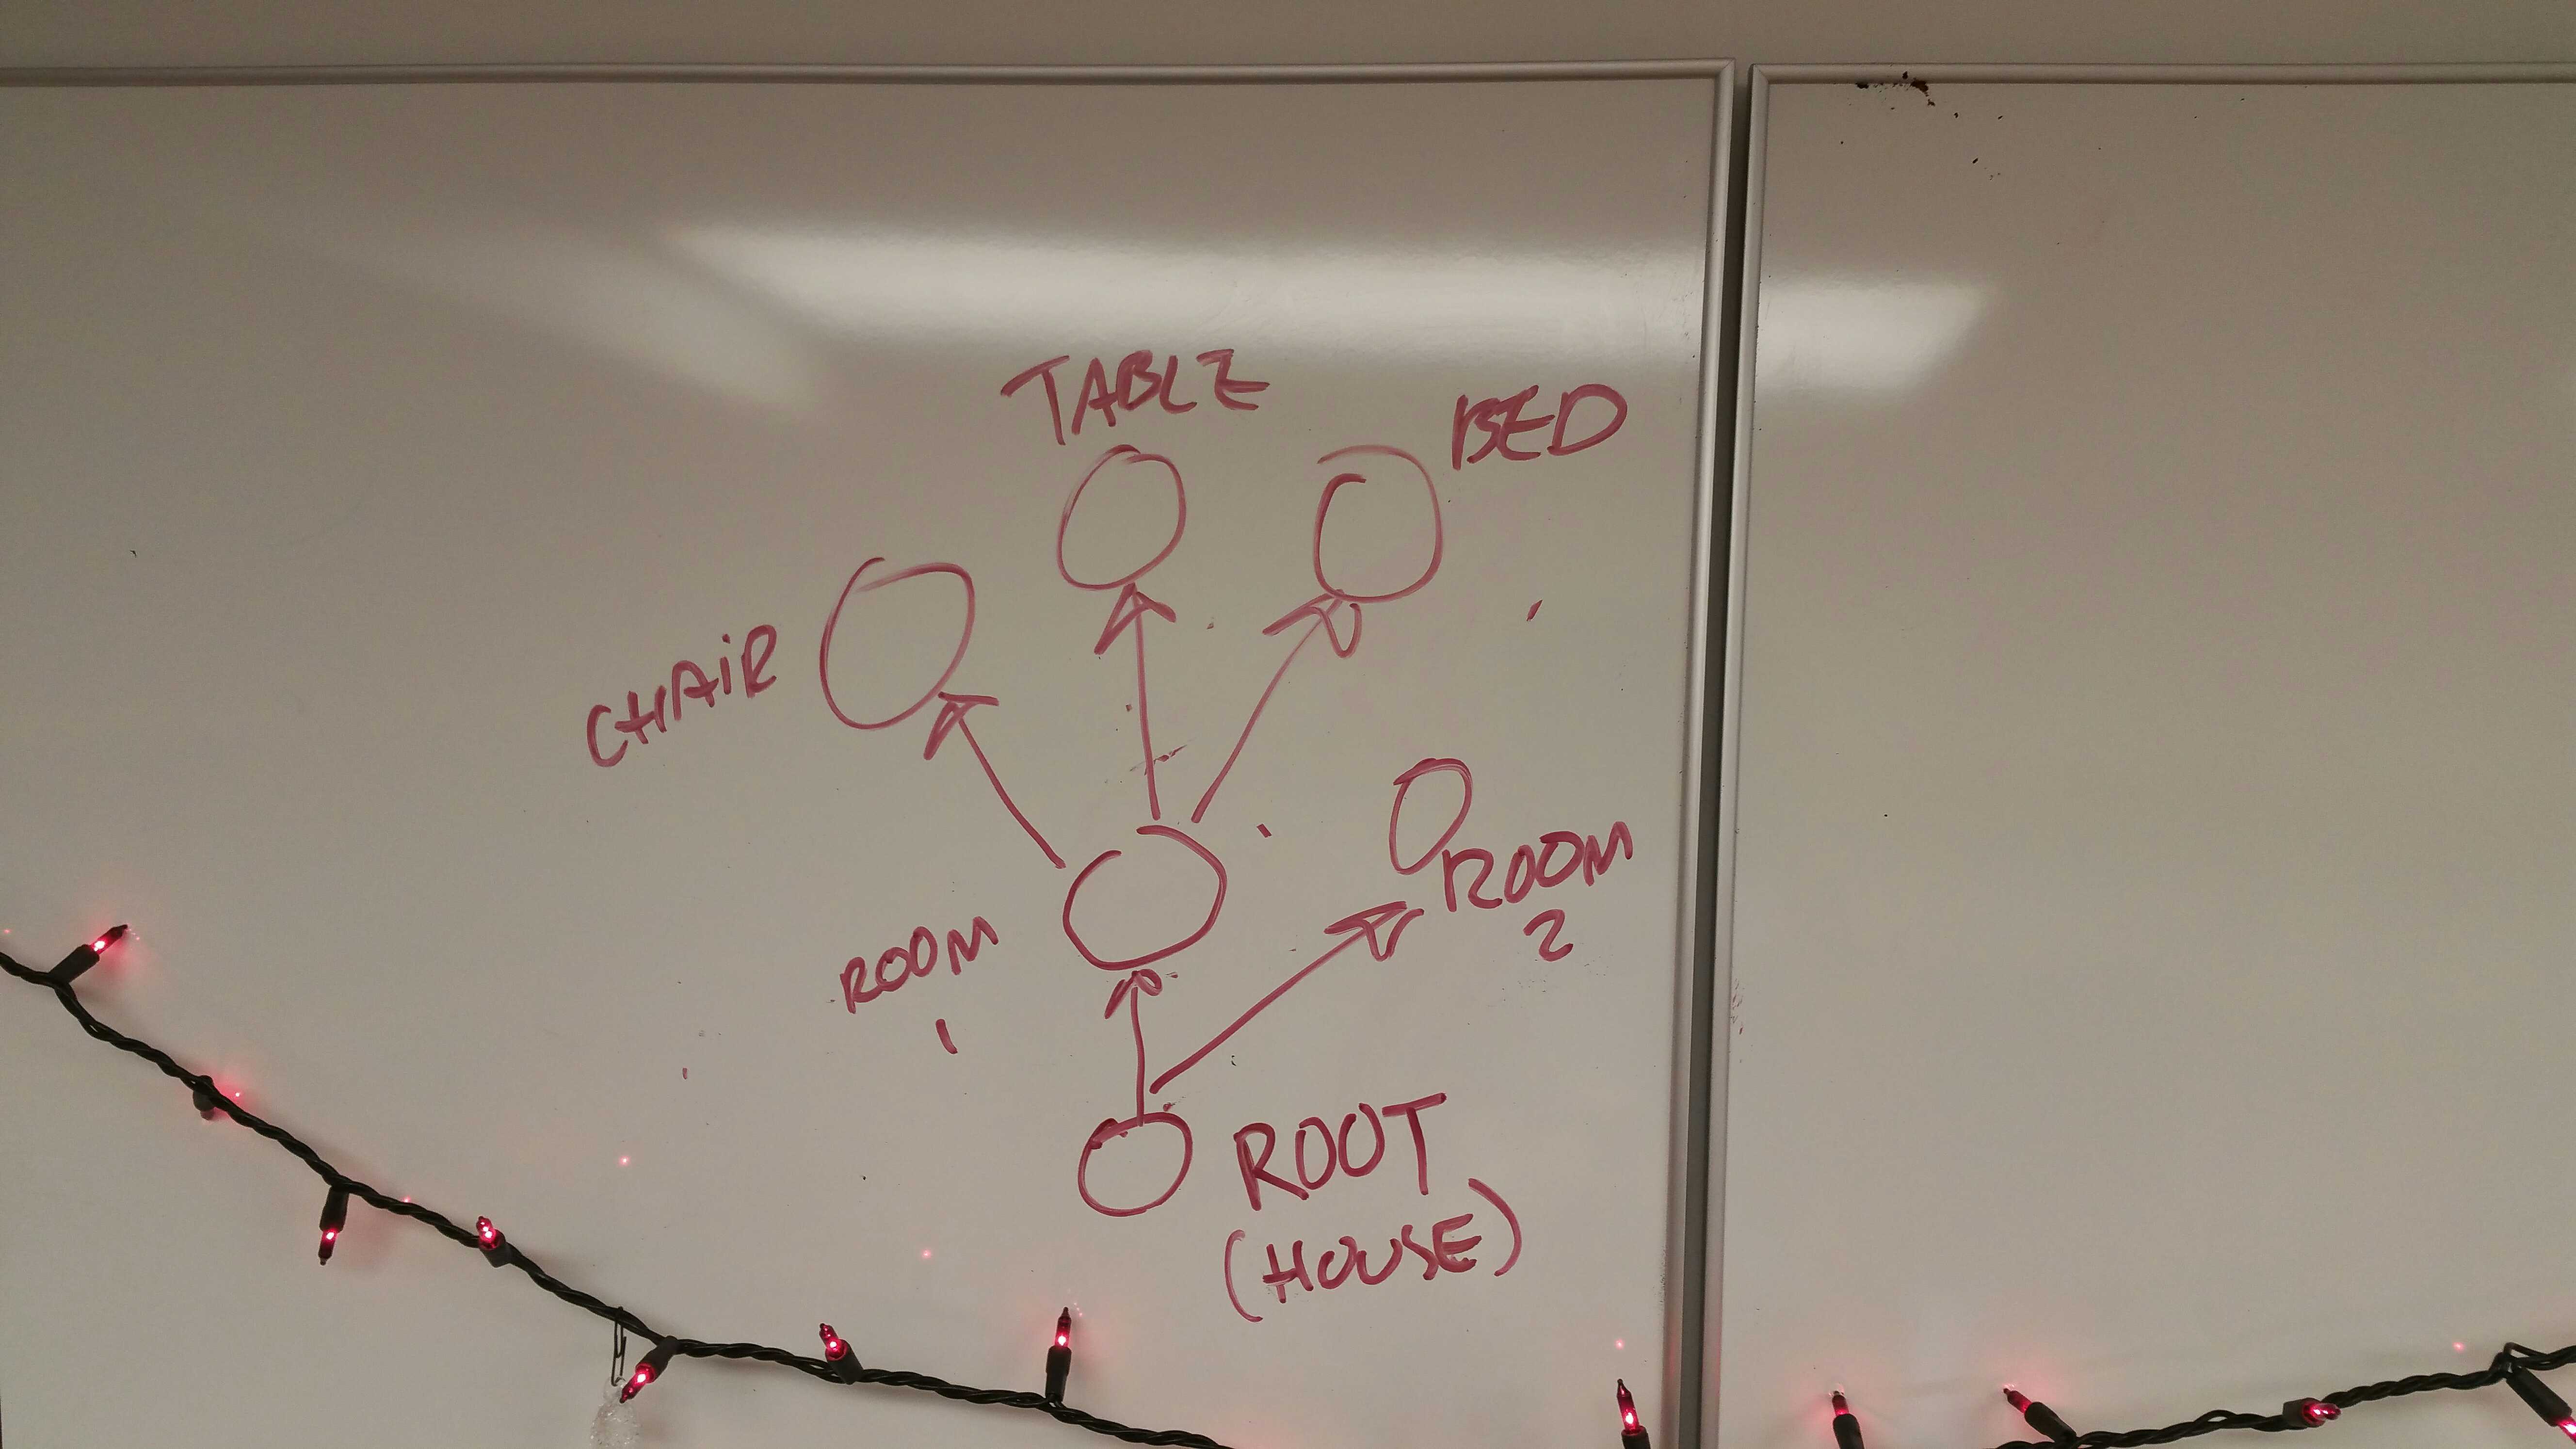 TABLE
BED
CHAiR
ROOM
2
ROOM
1
ROOT
(HOUSE)